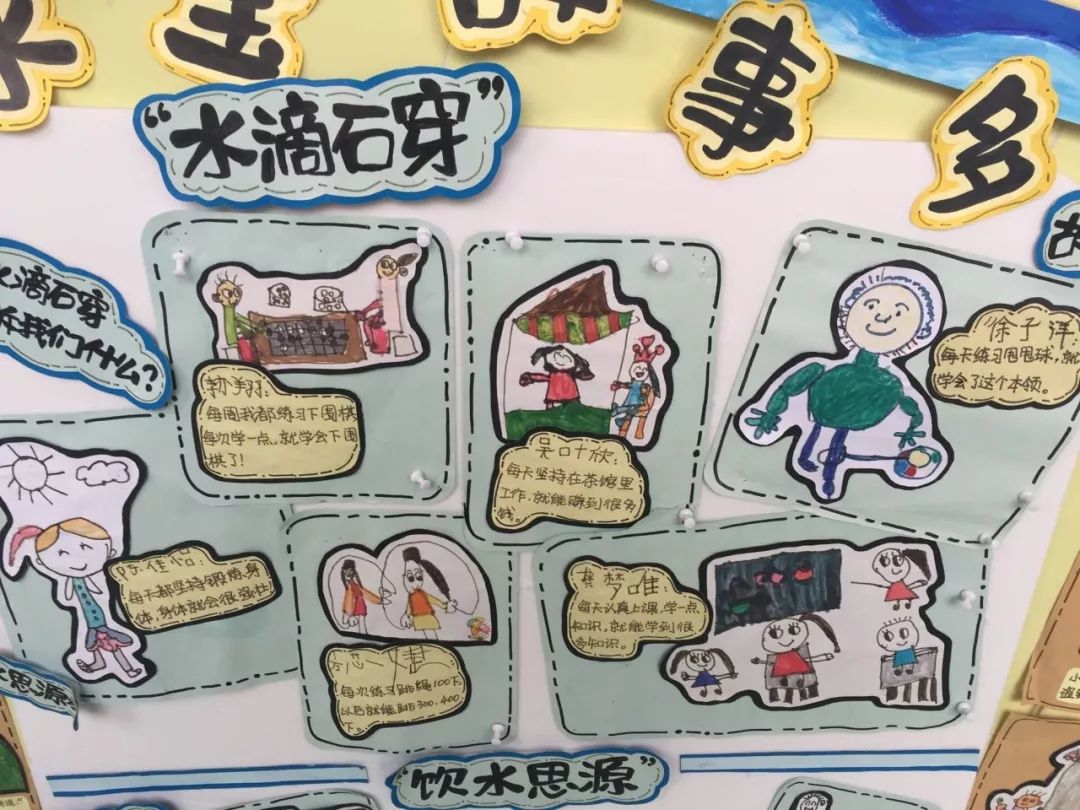 事多
“水滴石穿”
滴石穿
我们什么?
每周我都练习下围棋
每次学一点,就学会下围
棋了!
吴叶欣:
每天坚持在茶馆里
工作,就能赚到很多
钱。
徐子洋:
每天练习甩甩球,就
学会了这个本领。
陈佳怡:
每天都坚持锻炼身
体,身体就会很强壮
每次练习跳绳100下,
以后就能跳300、400
下。
龚梦唯:
每天认真上课,学一点
知识,就能学到很
多知识。
思源
“饮水思源”